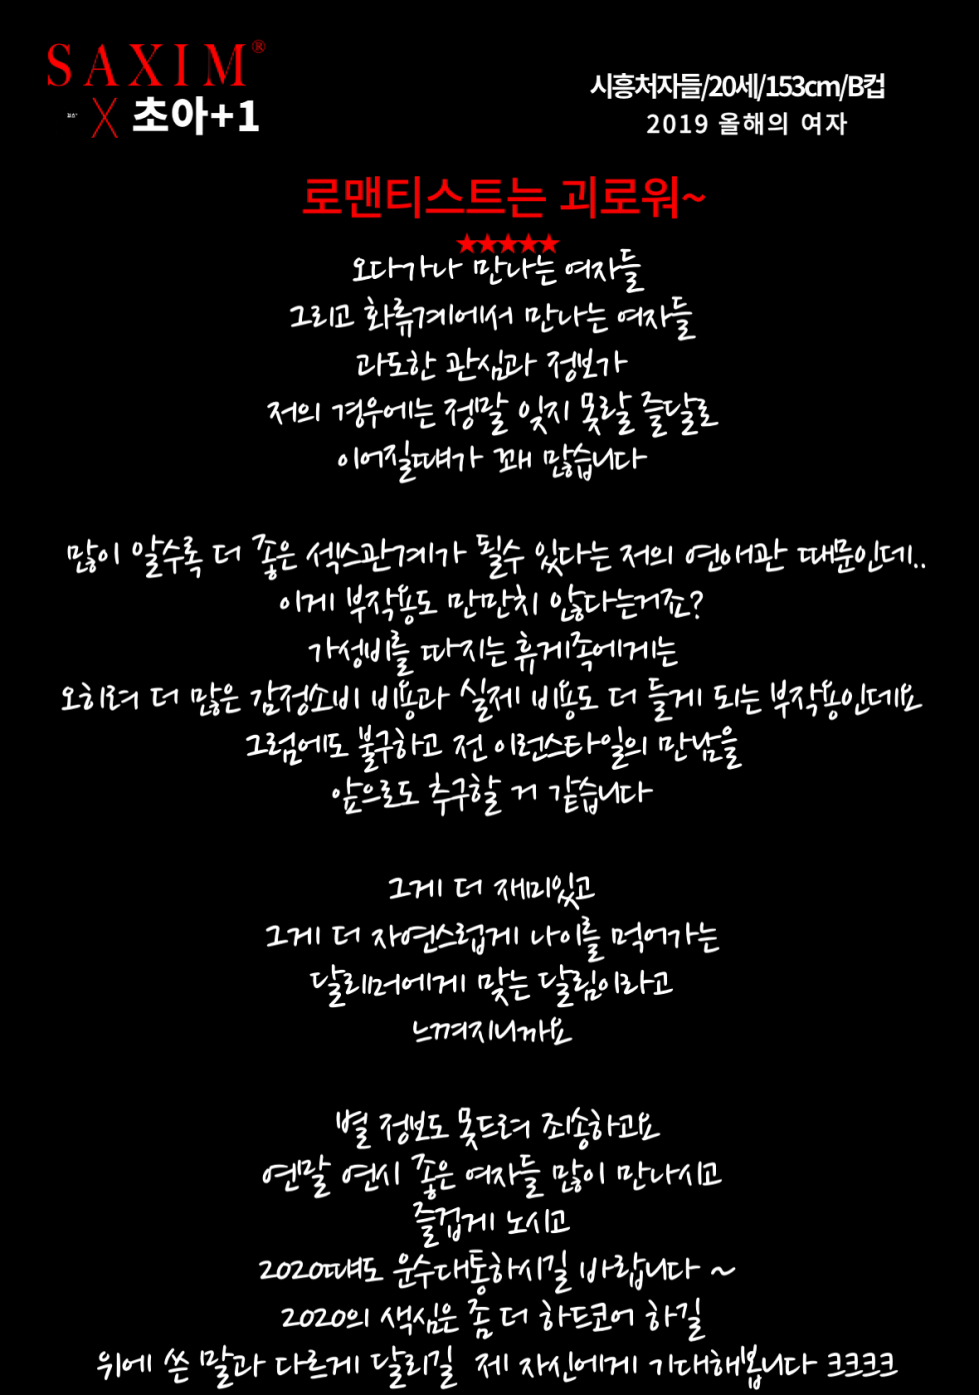 SAXIM®
X 초아+1
시흥처자들/20세/153cm/B컵
2019 올해의 여자
로맨티스트는 괴로워~
★★★★★
오다가나 만나는 여자들
그리고 화류계에서 만나는 여자들
과도한 관심과 정보가
저의 경우에는 정말 잊지 못랄 즐달로
이어질때가 꽤 많습니다
많이 알수록 더 좋은 섹스관계가 될수 있다는 저의 연애관 때문인데..
이게 부작용도 만만치 않다는거죠?
가성비를 따지는 휴게족에게는
오히려 더 많은 감정소비 비용과 실제 비용도 더 들게 되는 부작용인데요
그럼에도 불구하고 전 이런스타일의 만남을
앞으로도 추구할 거 같습니다
그게 더 재미있고
그게 더 자연스럽게 나이를 먹어가는
달레머에게 맞는 달림이라고
느껴지니까요
별 정보도 못드려 죄송하고요
연말 연시 좋은 여자들 많이 만나시고
즐겁게 노시고
2020때도 운수대통하시길 바랍니다 ~
2020의 색심은 좀 더 하드코어 하길
위에 쓴 말과 다르게 달리길 제 자신에게 기대해봅니다 크크크크